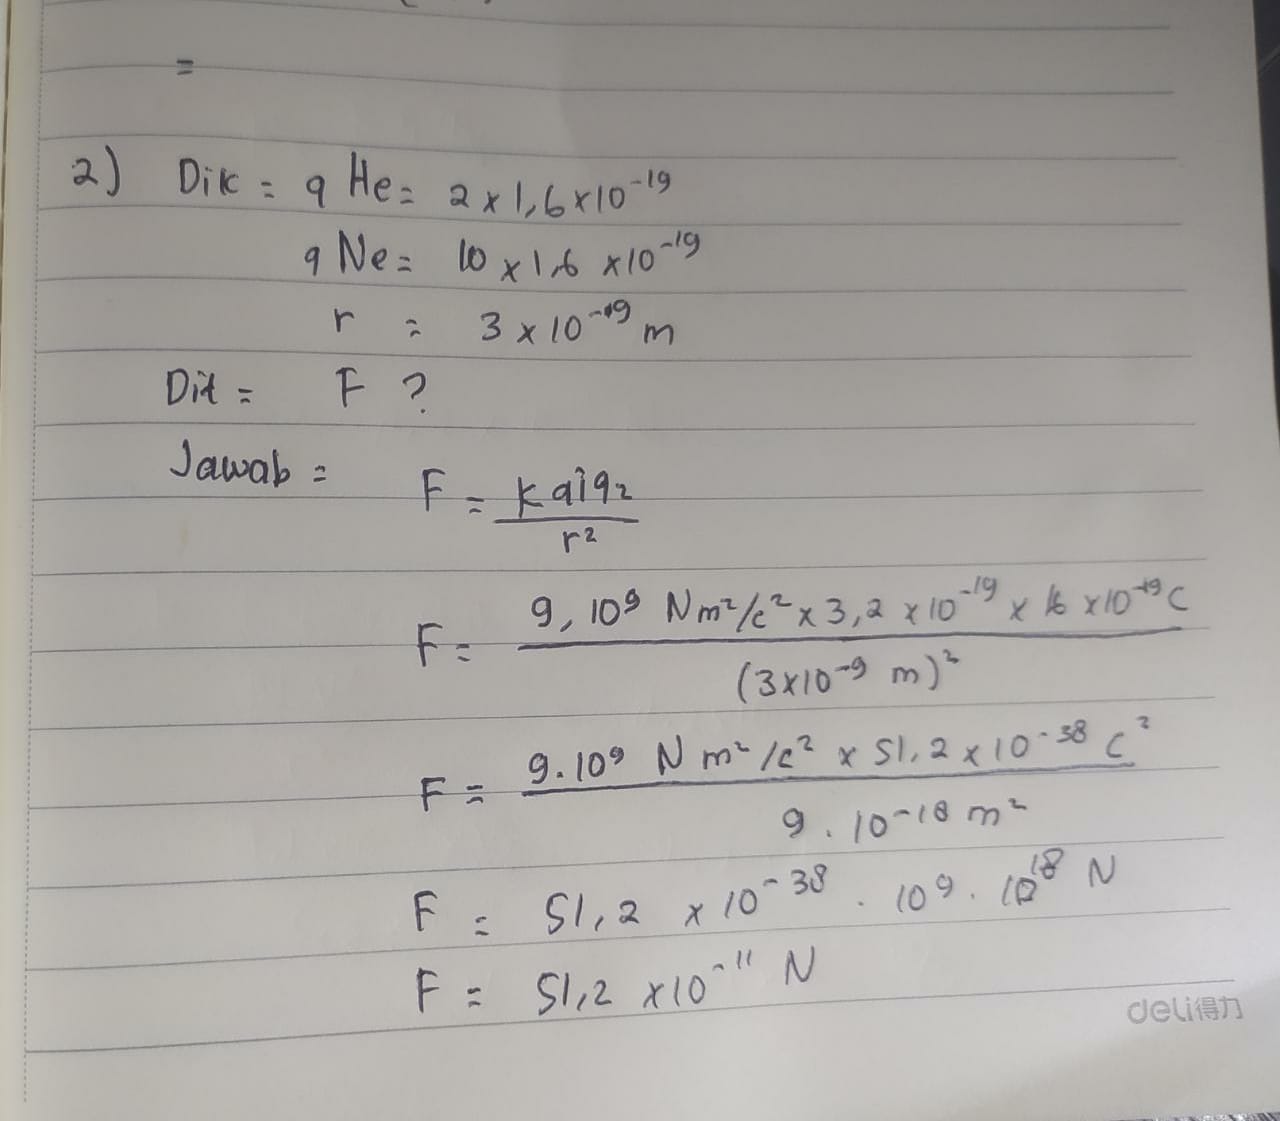 =
2) Dik = q He = 2 x 1,6 x 10⁻¹⁹
q Ne = 10 x 1,6 x 10⁻¹⁹
r = 3 x 10⁻⁹ m
Dit = F ?
Jawab = F = k q1 q2
r²
F = 9, 10⁹ Nm²/c² x 3,2 x 10⁻¹⁹ x 16 x 10⁻¹⁹ C
(3x10⁻⁹ m)²
F = 9.10⁹ N m²/c² x 51,2 x 10⁻³⁸ C²
9 . 10⁻¹⁸ m²
F = 51,2 x 10⁻³⁸ . 10⁹ . 10¹⁸ N
F = 51,2 x 10⁻¹¹ N
deli得力